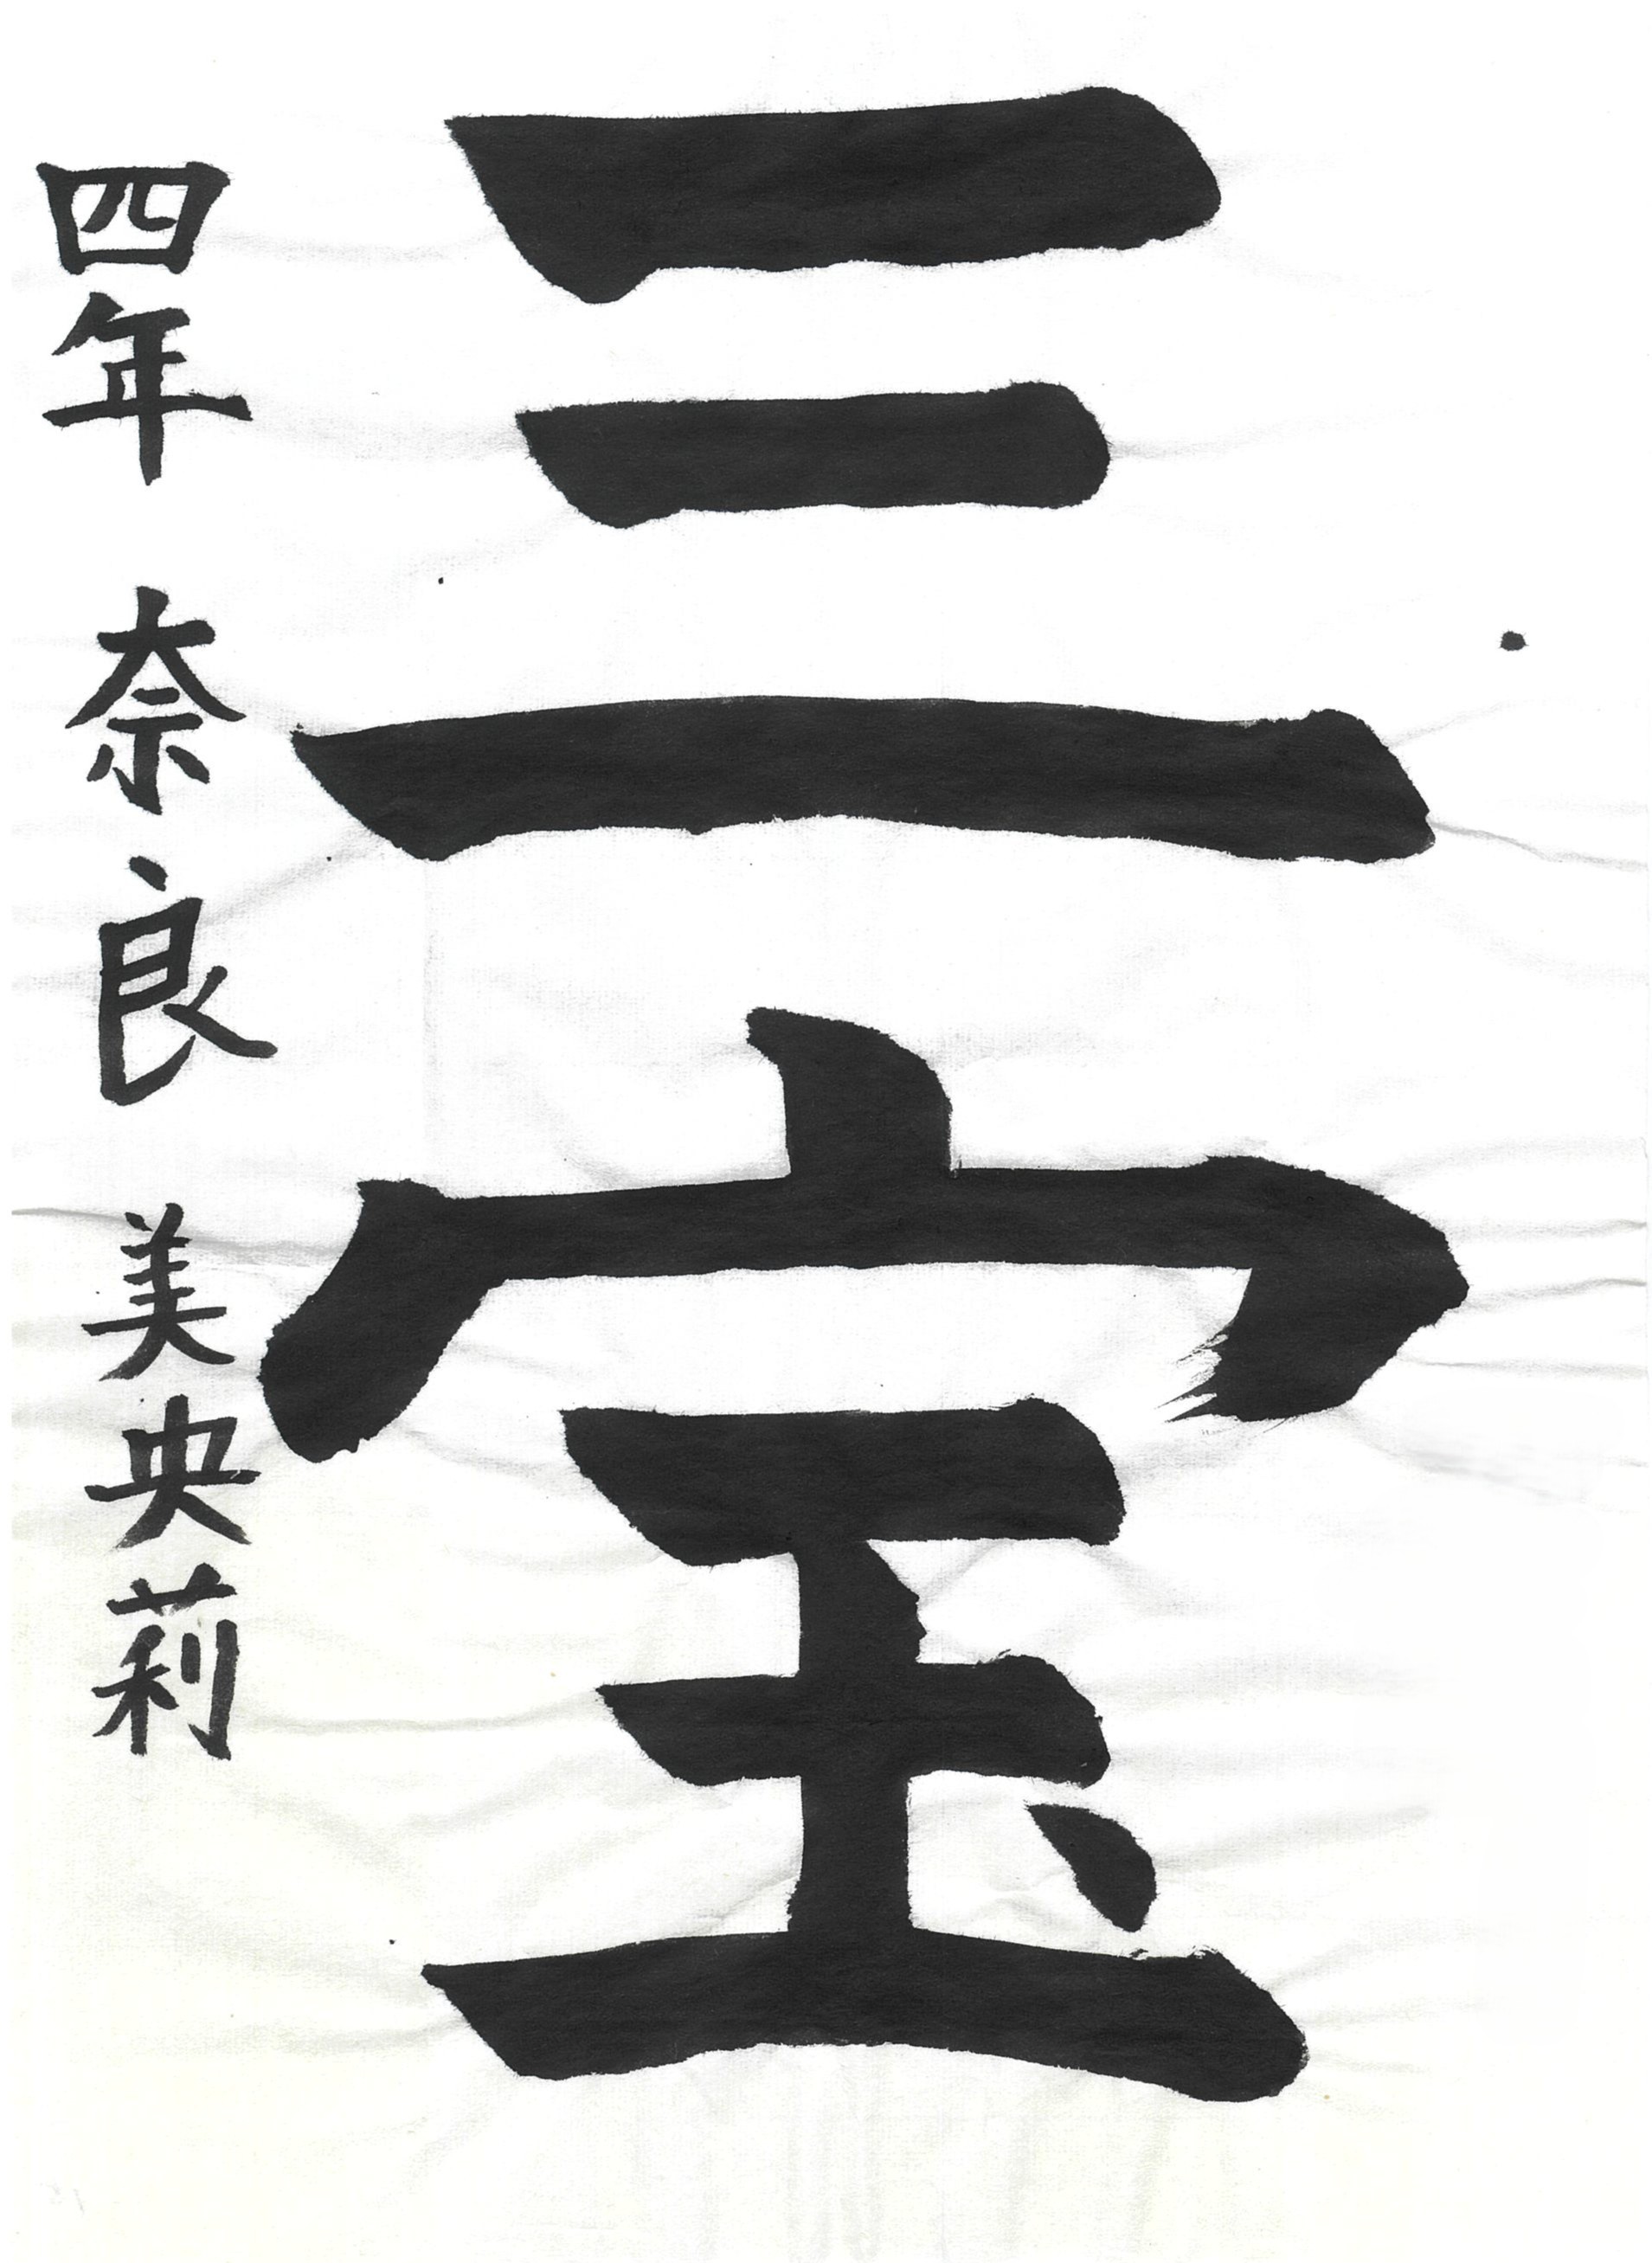 三宝
四年 奈良 美央莉